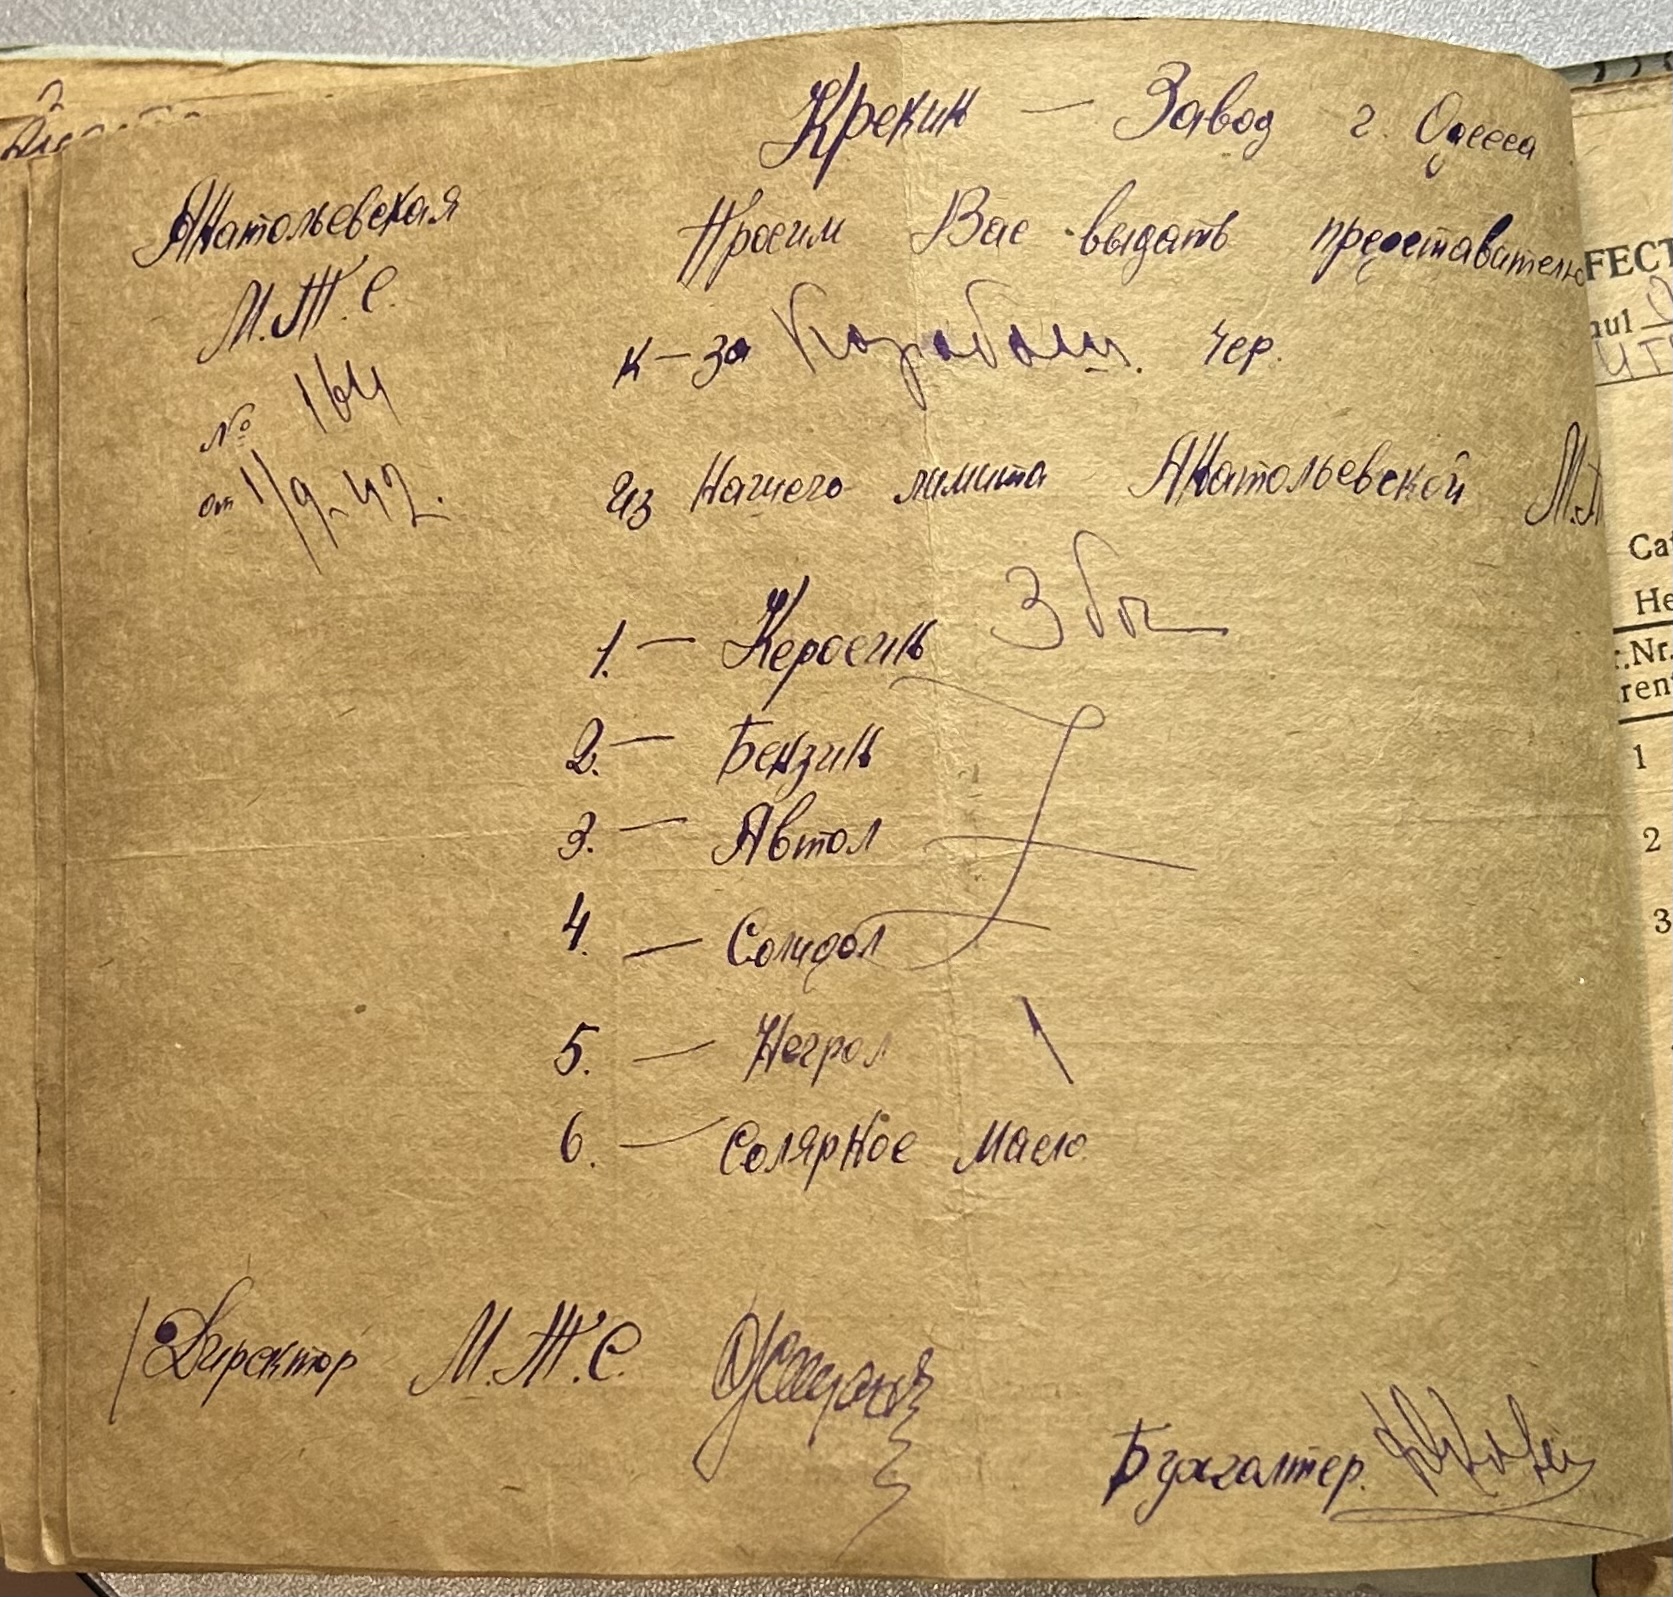 Крекин — Завод г. Одесса
Анатольевская
М.Т.С.
№ 164
от 1/9-42.
Просим Вас выдать представителю
к-за Карабаш. чер.
из Нашего лимита Анатольевской М.Т
1. — Керосин 3 боч
2. — Бензин
3. — Автол
4. — Солидол
5. — Негрол
6. — Солярное масло
Директор М.Т.С.
Бухгалтер.
FECT
nul
Cat
He
.Nr.
rent
1
2
3